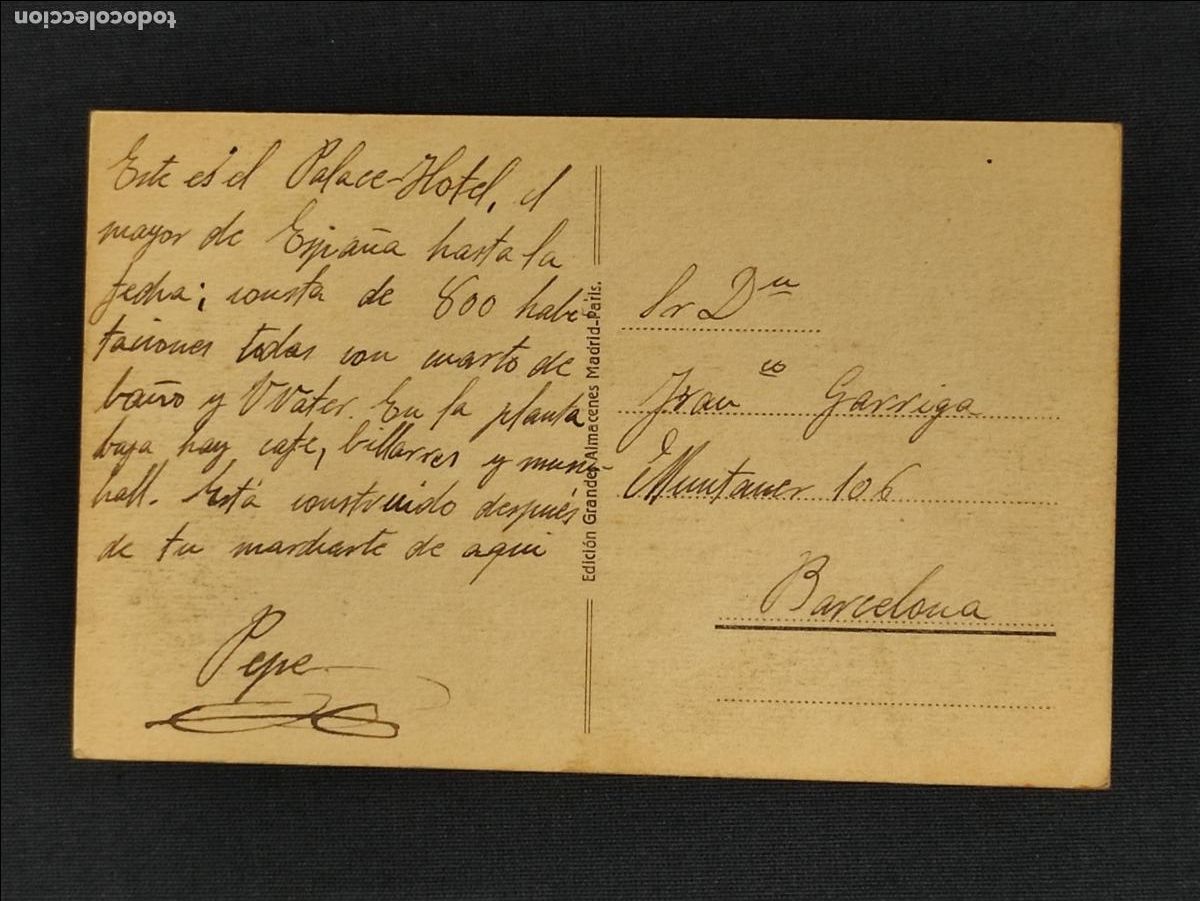 todocoleccion
Este es el Palace-Hotel, el
mayor de España hasta la
fecha; consta de 800 habi-
taciones todas con cuarto de
baño y Water. En la planta
baja hay cafe, billarres y musi-
hall. Está construido después
de tu marcharte de aqui
Pepe
Edición Grandes Almacenes Madrid-París.
Sr Dn
Franco Garriga
Muntaner 106
Barcelona